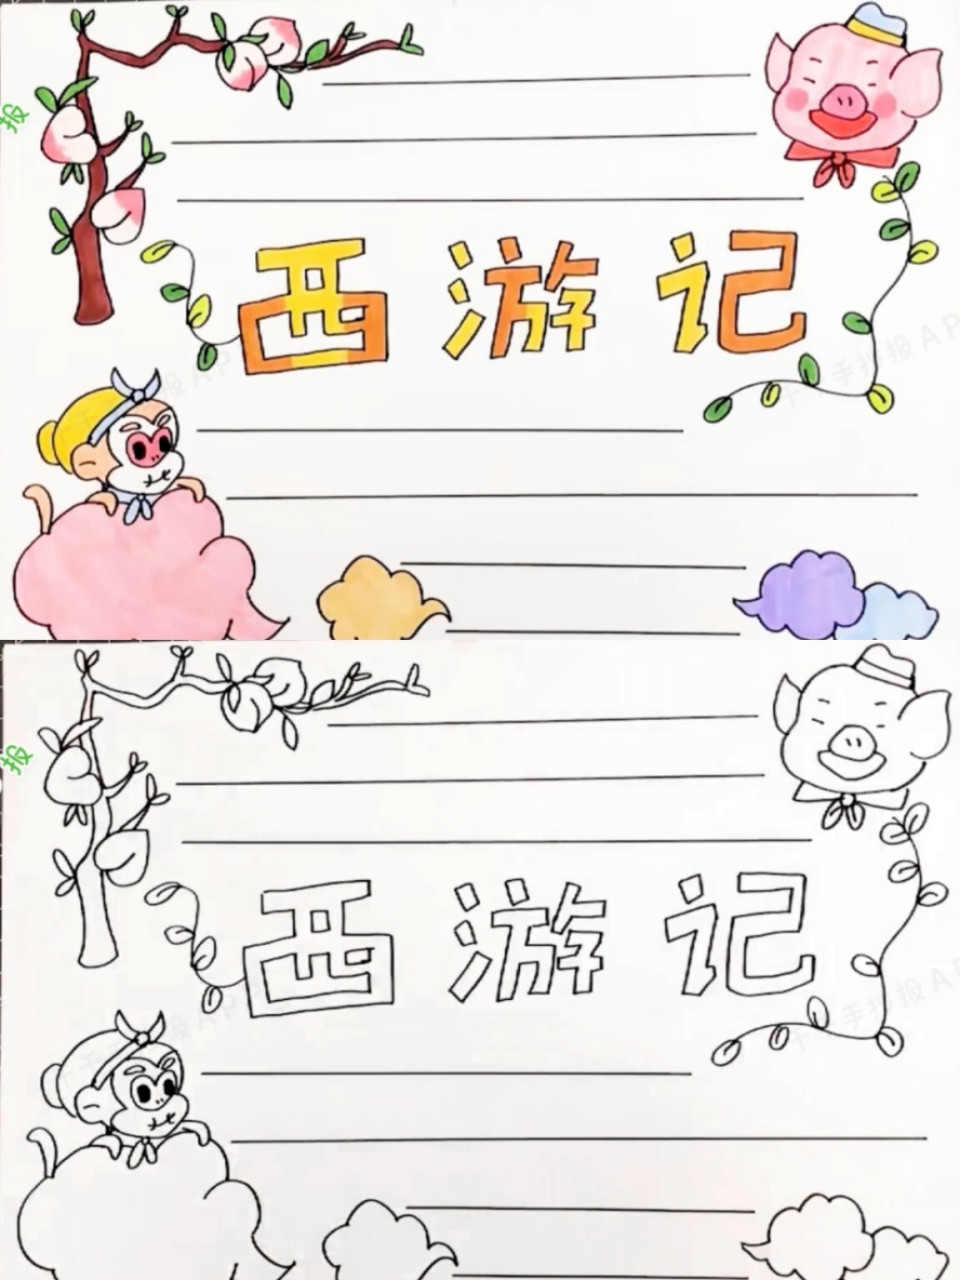 报
西游记
千千手抄报APP
报
西游记
千千手抄报APP